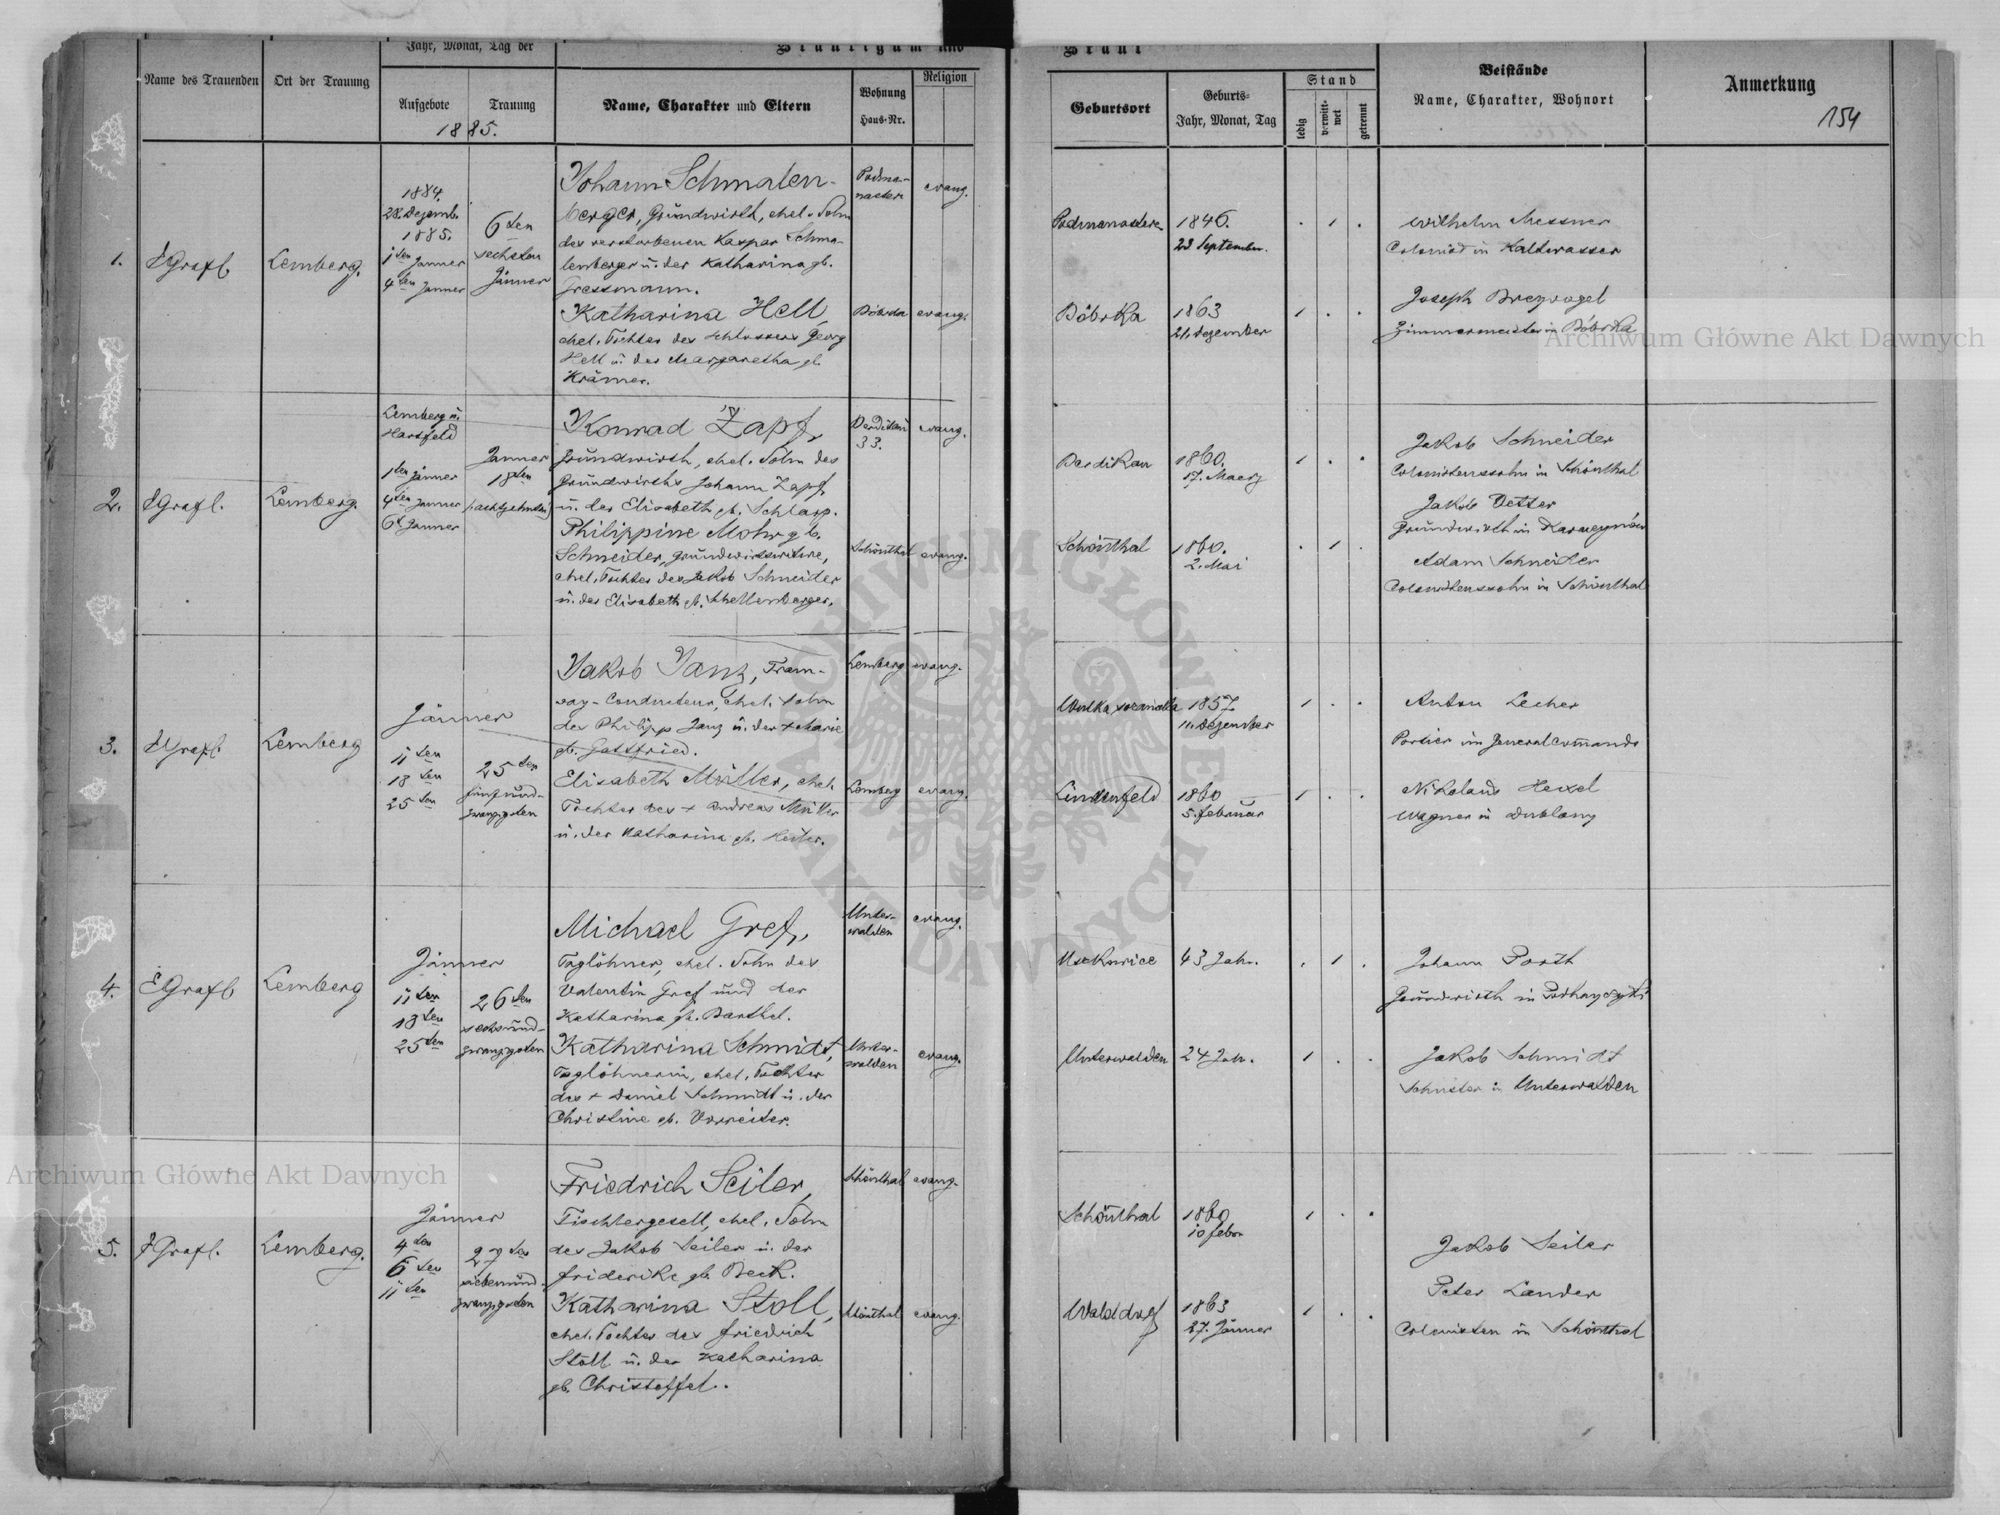 Jahr, Monat, Tag der
Bräutigam und
Braut
Name des Trauenden
Ort der Trauung
Aufgebote
Trauung
1885.
Name, Charakter und Eltern
Wohnung
Haus-Nr.
Religion
Geburtsort
Geburts-
Jahr, Monat, Tag
Stand
ledig
verwitt-
wet
getrennt
Beistände
Name, Charakter, Wohnort
Anmerkung
154
1.
EGrafl
Lemberg.
1884.
28. Dezemb.
1885.
1ten Janner
4ten Janner
6ten
sechsten
Jänner
Johann Schmalen-
berger, Grundwirth, ehel. Sohn
des verstorbenen Kaspar Schma-
lenberger u. der Katharina gb.
Gressmann.
Podma-
nasterz
evang.
Podmanasterz
1846.
23 September.
Katharina Hell
ehel. Tochter des Schlossers Georg
Hell u. der Margaretha gb.
Krämer.
Bóbrka
evang.
Bóbrka
1863
21. Dezember
Wilhelm Messner
Colonist in Kaltwasser
Joseph Breyvogel
Zimmermeister in Bóbrka
2.
EGrafl.
Lemberg.
Lemberg u.
Hartfeld
1ten Jänner
4ten Janner
6t Janner
Janner
18ten
(achtzehnten)
Konrad Zapf,
Grundwirth, ehel. Sohn des
Grundwirths Johann Zapf,
u. der Elisabeth gb. Schlarp.
33.
evang.
Berdikau
1860.
17. Maerz
Philippine Mohr gb.
Schneider, Grundwirtswitwe,
ehel. Tochter des Jakob Schneider
u. der Elisabeth gb. Schellenberger.
Schönthal
evang.
Schönthal
1860.
2. Mai
Jakob Schneider
Colonistenssohn in Schönthal
Jakob Vetter
Grundwirth in
Adam Schneider
Colonistenssohn in Schönthal
3.
EGrafl.
Lemberg
Jänner
11ten
18ten
25ten
25ten
fünfund-
zwanzigsten
Jakob Janz, Tram-
way-Conducteur, ehel. Sohn
des Philipp Janz u. der + Marie
gb. Gottfried.
Lemberg
evang.
1857
11. Dezember
Elisabeth Müller, ehel.
Tochter des + Andreas Müller
u. der Katharina gb. Heiler.
Lemberg
evang.
Lindenfeld
1860
5. Februar
Anton Lecher
Portier im Generalcomando
Nikolaus Hexel
Wagner in Dublany
4.
EGrafl
Lemberg
Jänner
11ten
18ten
25ten
26ten
sechsund-
zwanzigsten
Michael Gref,
Taglöhner, ehel. Sohn des
Valentin Gref und der
Katharina gb. Barthel.
Unter-
walden
evang.
Uszkowice
43 Jahr.
Katharina Schmidt,
Taglöhnerin, ehel. Tochter
des + Daniel Schmidt u. der
Christine gb. Vorreiter.
Unter-
walden
evang.
Unterwalden
24 Jahr.
Johann Porth
Grundwirth in Podhayczyki
Jakob Schmidt
Schuster in Unterwalden
5.
EGrafl.
Lemberg.
Jänner
4ten
6ten
11ten
27ten
siebenund-
zwanzigsten
Friedrich Seiler,
Tischlergesell, ehel. Sohn
des Jakob Seiler u. der
Friderike gb. Beck.
Schönthal
evang.
Schönthal
1860
10 Feber
Katharina Stoll,
ehel. Tochter des Friedrich
Stoll u. der Katharina
gb. Christoffel.
Schönthal
evang.
Walddorf
1863
27. Jänner
Jakob Seiler
Peter Lander
Colonisten in Schönthal
Archiwum Główne Akt Dawnych
Archiwum Główne Akt Dawnych
ARCHIWUM GŁÓWNE AKT DAWNYCH